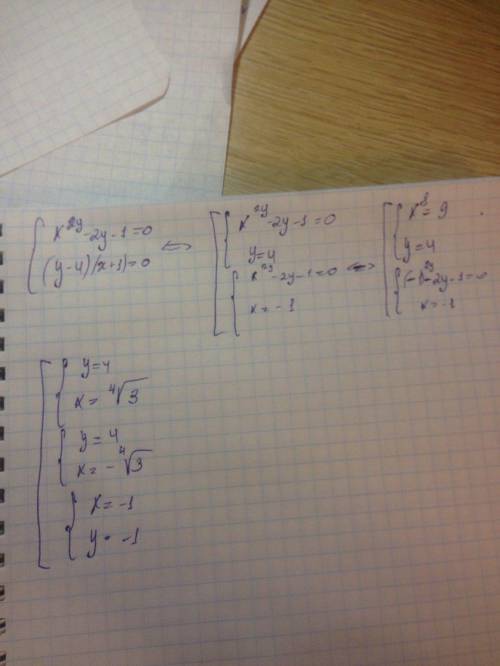 { x^{2y} - 2y - 1 = 0
{ (y-4)(x+1) = 0
⇔
[ { x^{2y} - 2y - 1 = 0
{ y = 4
{ x^{2y} - 2y - 1 = 0
{ x = -1
⇔
[ { x^8 = 9
{ y = 4
{ (-1)^{2y} - 2y - 1 = 0
{ x = -1
[ { y = 4
{ x = ⁴√3
{ y = 4
{ x = -⁴√3
{ x = -1
{ y = -1